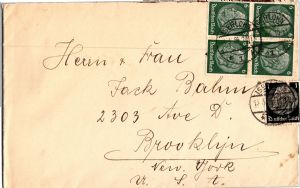 Herrn & Frau
Jack Bahm
2303 Ave D.
Brooklyn
New York
U. S. A.
Deutsches Reich